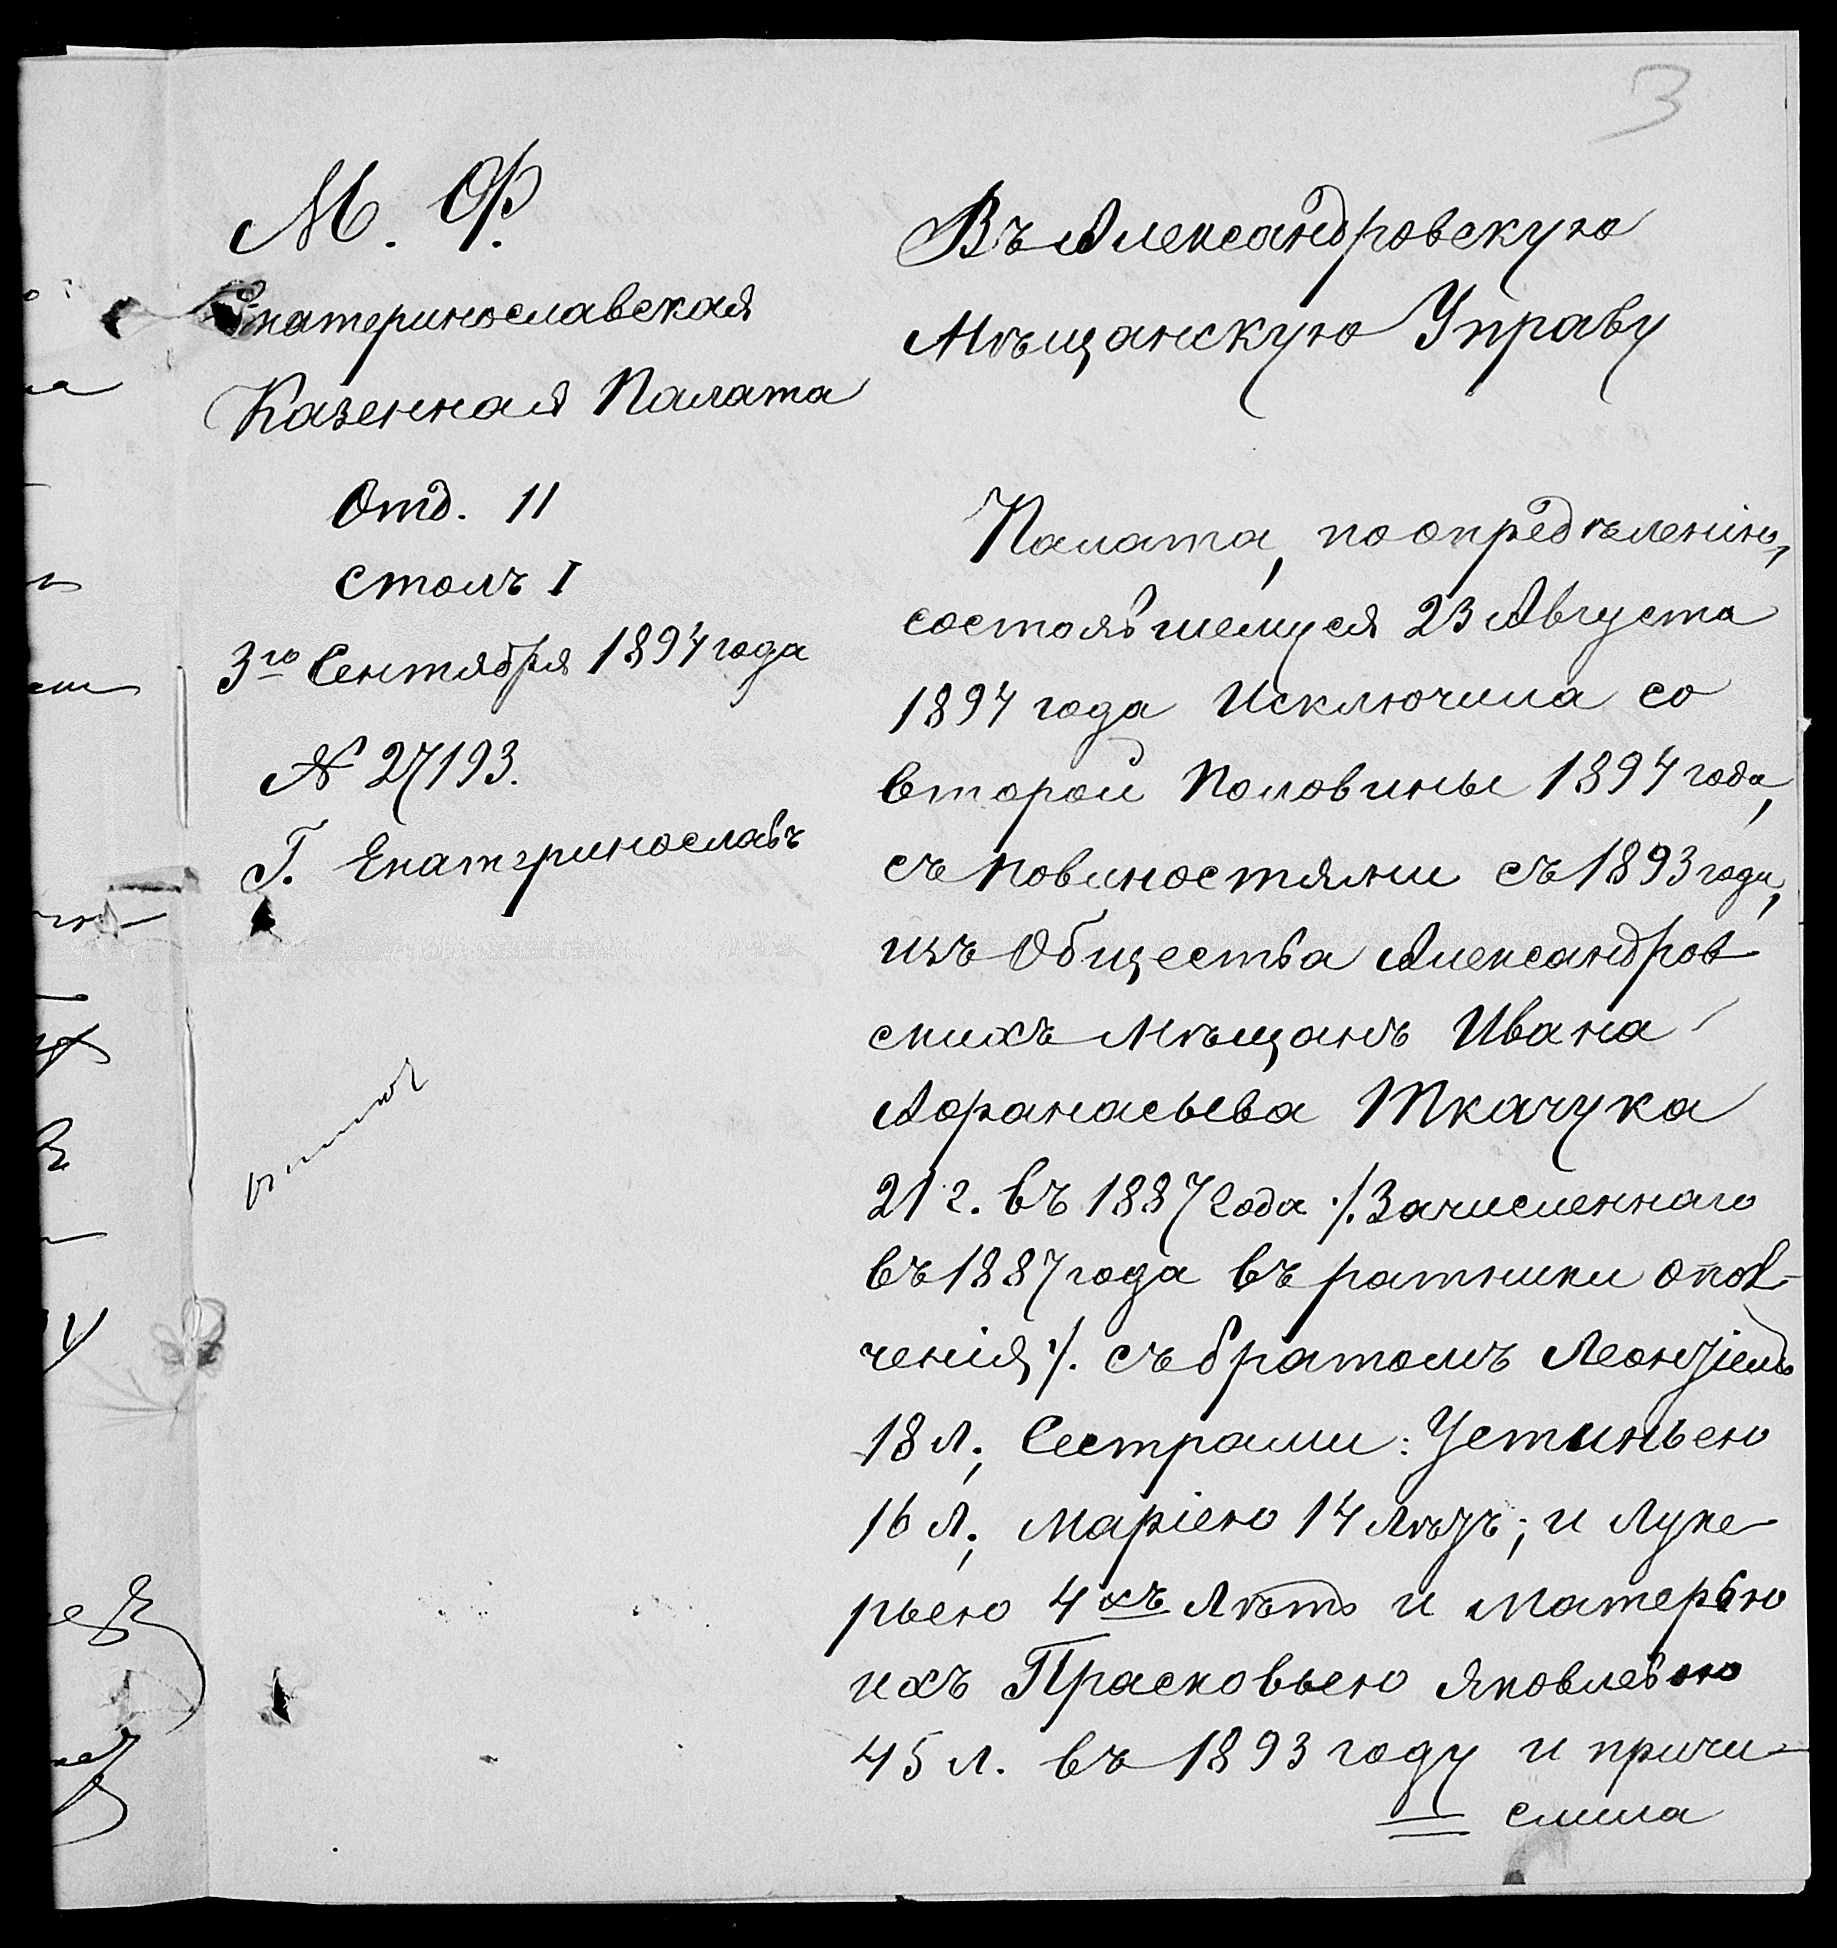 3
М. Ф.
Екатеринославская
Казенная Палата
Отд. II
столъ I
3го Сентября 1894 года
№ 27193.
Г. Екатеринославъ
Въ Александровскую
Мѣщанскую Управу
Палата, по опредѣленію,
состоявшемуся 23 Августа
1894 года Исключила со
второй Половины 1894 года,
съ повиностями съ 1893 года,
изъ Общества Александров
скихъ Мѣщанъ Ивана
Афанасьева Ткачука
21 г. въ 1887 года ./. Зачисленнаго
въ 1887 года въ ратники опол-
ченія ./. съ братомъ Леонтіемъ
18 л; Сестрами: Устиньею
16 л; Маріею 14 лѣтъ; и Луке
рьею 4хъ лѣтъ и матерью
ихъ Прасковьею Яковлевою
45 л. въ 1893 году и причи-
слила